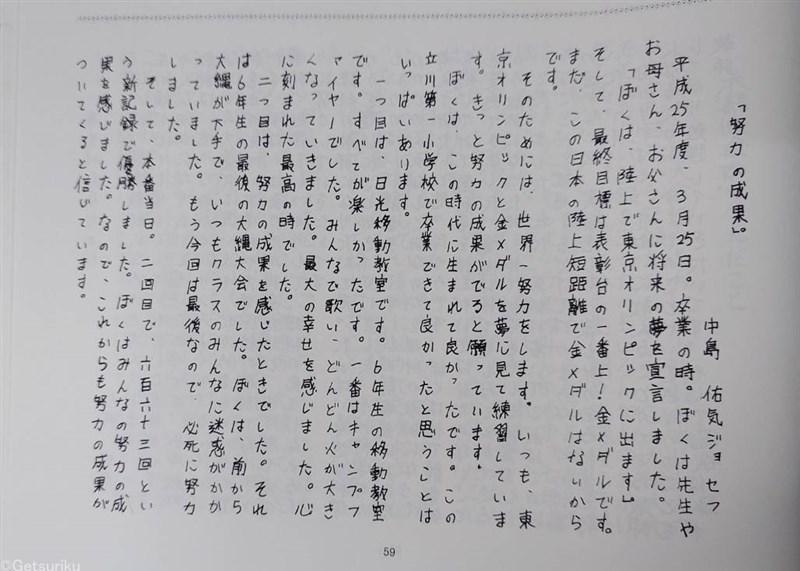 「努力の成果」。
中島 佑気ジョセフ
平成25年度、3月25日。卒業の時。ぼくは先生や
お母さん、お父さんに将来の夢を宣言しました。
「ぼくは、陸上で東京オリンピックに出ます」
そして、最終目標は表彰台の一番上！金メダルです。
まだ、この日本の陸上短距離で金メダルはないから
です。
そのためには、世界一努力をします。いつも、東
京オリンピックと金メダルを夢に見て練習していま
す。きっと努力の成果がでると願っています。
ぼくは、この時代に生まれて良かったです。この
立川第一小学校で卒業できて良かったと思うことは
いっぱいあります。
一つ目は、日光移動教室です。6年生の移動教室
です。すべてが楽しかったです。一番はキャンプフ
ァイヤーでした。みんなで歌い、どんどん火が大き
くなっていきました。最大の幸せを感じました。心
に刻まれた最高の時でした。
二つ目は、努力の成果を感じたときでした。それ
は6年生の最後の大縄大会でした。ぼくは、前から
大縄が下手で、いつもクラスのみんなに迷惑がかか
っていました。もう今回は最後なので、必死に努力
しました。
そして、本番当日。二回目で、六百六十三回とい
う新記録で優勝しました。ぼくはみんなの努力の成
果を感じました。なので、これからも努力の成果が
ついてくると信じています。
59
©Getsuriku